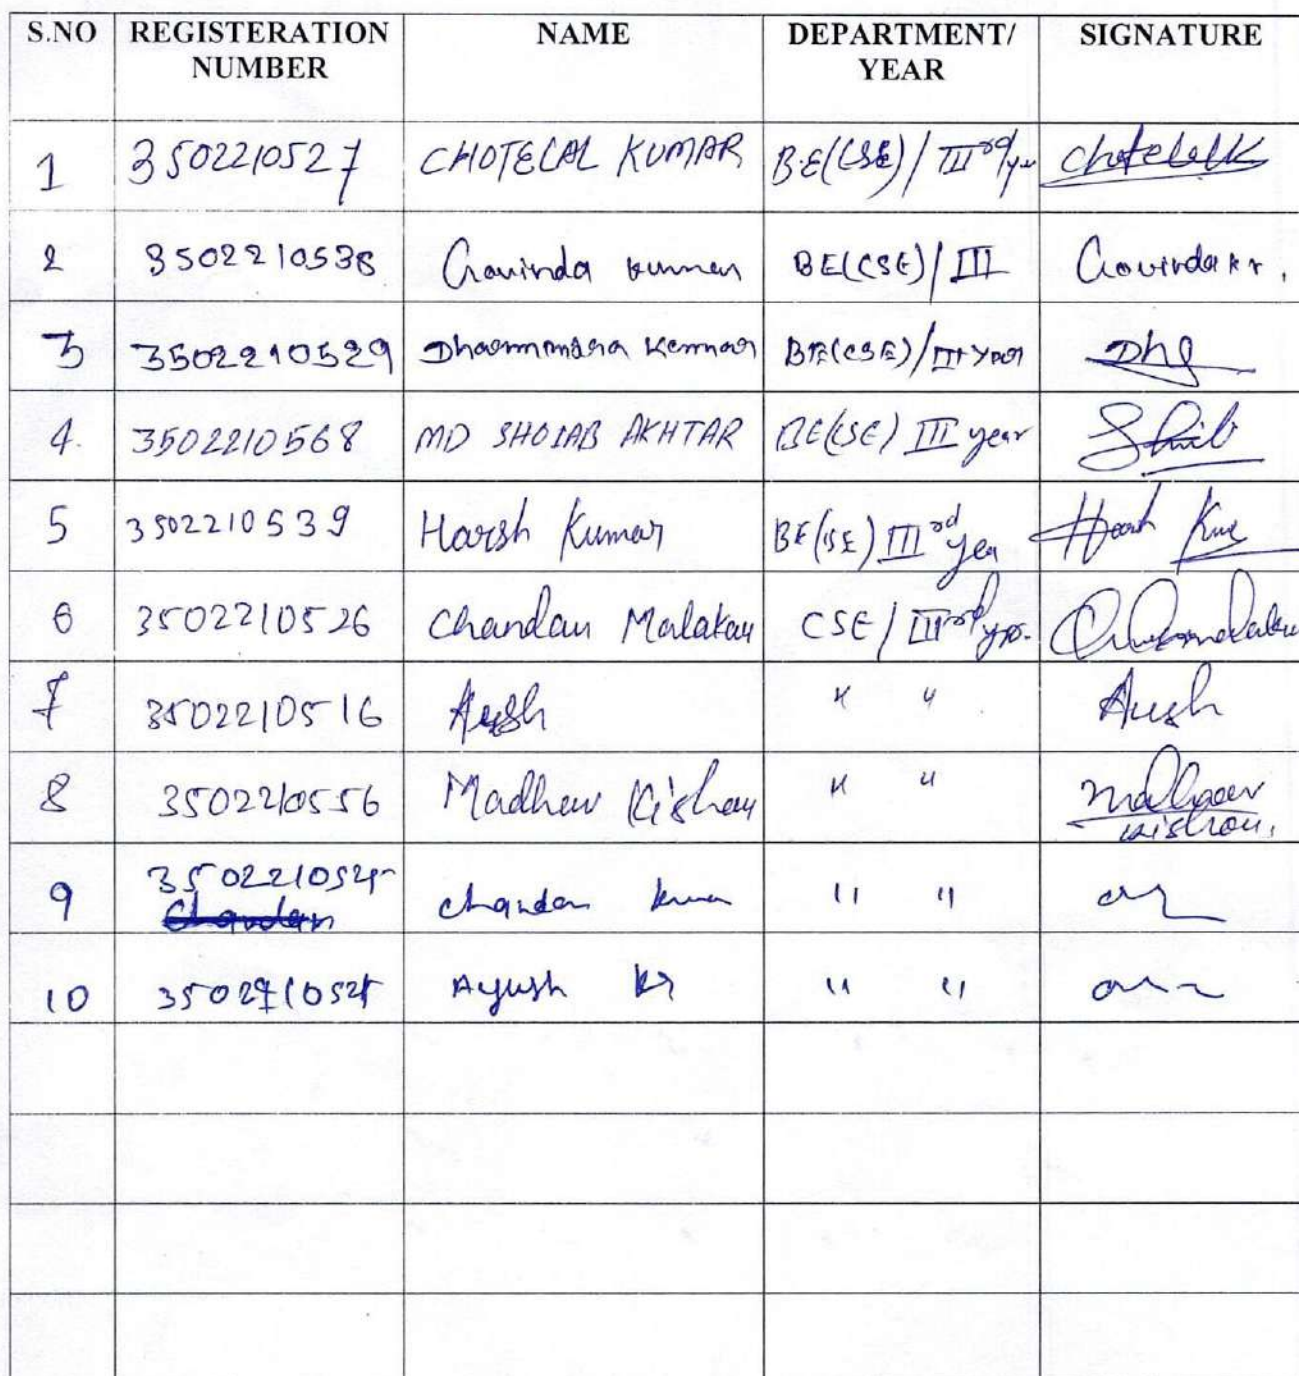 S.NO REGISTERATION NUMBER NAME DEPARTMENT/ YEAR SIGNATURE
1 3502210527 CHOTELAL KUMAR B.E(CSE)/IIIrd yr chotelalk
2 3502210538 Govinda kumar BE(CSE)/III Govinda kr.
3 3502210529 Dharmendra Kumar BE(CSE)/III year
4. 3502210568 MD SHOIAB AKHTAR BE(CSE) III year
5 3502210539 Harsh Kumar BE(CSE) IIIrd year Harsh
6 3502210526 Chandan Malakar CSE/IIIrd yr.
7 3502210516 Aush " " Aush
8 3502210556 Madhav Kishan " " Madhav Kishan.
9 " "
chandan kumar
10 Ayush kr " "